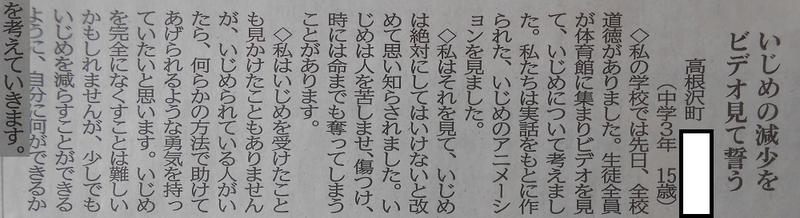 いじめの減少を
ビデオ見て誓う
高根沢町
(中学3年 15歳)
◇私の学校では先日、全校
道徳がありました。生徒全員
が体育館に集まりビデオを見
て、いじめについて考えまし
た。私たちは実話をもとに作
られた、いじめのアニメーシ
ョンを見ました。
◇私はそれを見て、いじめ
は絶対にしてはいけないと改
めて思い知らされました。い
じめは人を苦しませ、傷つけ、
時には命までも奪ってしまう
ことがあります。
◇私はいじめを受けたこと
も見かけたこともありません
が、いじめられている人がい
たら、何らかの方法で助けて
あげられるような勇気を持っ
ていたいと思います。いじめ
を完全になくすことは難しい
かもしれませんが、少しでも
いじめを減らすことができる
ように、自分に何ができるか
を考えていきます。